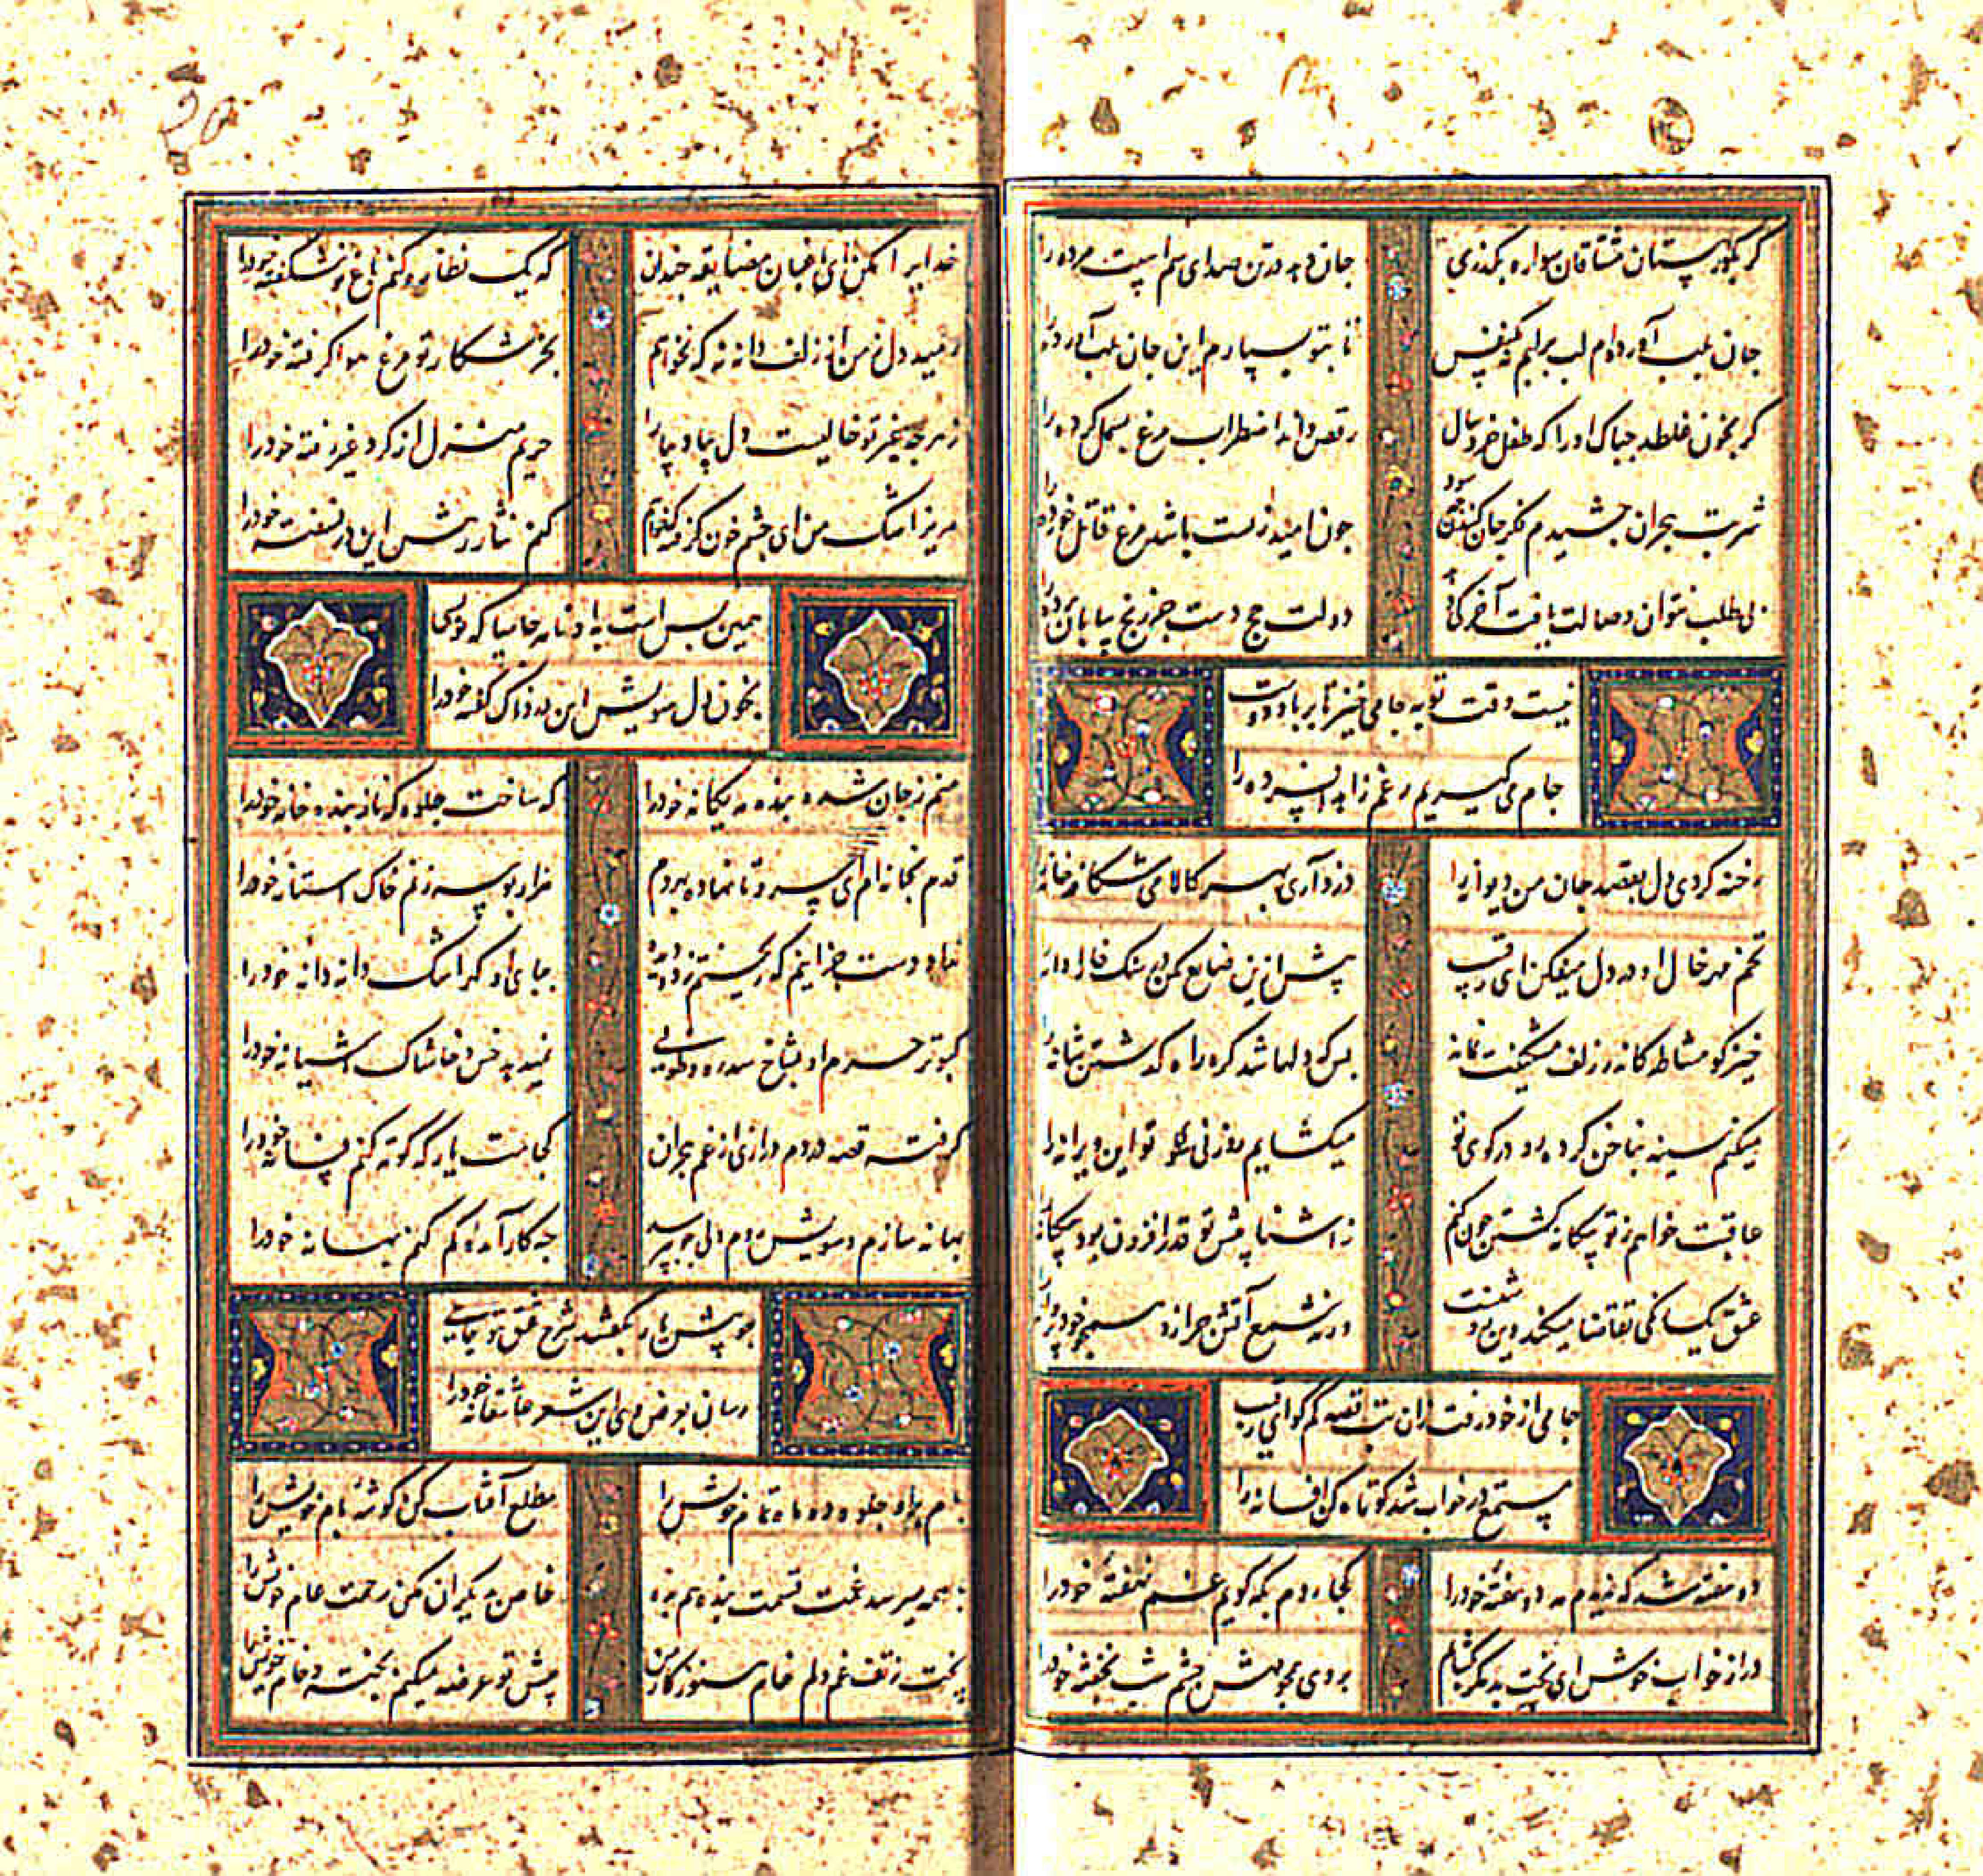 گر بگورستان مشتاقان سواره بگذری
جان دهد در تن صدای سم اسپت مرده را
جان بلب آورده‌ام لب بر لبم نه یکنفس
تا بتو بسپارم این جان بلب آورده را
گر بخون غلطد چه باک او را که طفل خرد سال
رقص داند اضطراب مرغ بسمل کرده را
شربت هجران چشیدم فکر جان کندن چه سود
چون امید زیست باشد مرغ قاتل خورده را
بی طلب نتوان وصالت یافت آری کی
دولت حج دست جز رنج بیابان برده را
نیست وقت توبه جامی خیز تا بر یاد دوست
جام می گیریم رغم زاهد افسرده را
رخنه کردی دل بقصد جان من دیوانه را
دزد آری بهر کالا می شکافد خانه را
تخم مهر خال او در دل میفکن ای رقیب
پیش ازین ضایع مکن در سنگ خارا دانه را
خیز گو مشاطه کاندر زلف مشکینت نماند
بس که دلها شد گره راه گذشتن شانه را
میکنم سینه بناخن کرده رو در کوی تو
میگشایم روزنی سوی تو این ویرانه را
عاقبت خواهم ز تو بیگانه گشتن چون کنم
ز آشنا پیش تو قدر افزون بود بیگانه را
عشق یکسانی تقاضا میکند وین دور نیست
ورنه شمع آتش چرا زد همچو خود پروانه را
جامی از خود رفت زان لب قصه کم گو ای رقیب
مستمع در خواب شد کوتاه کن افسانه را
دو هفته شد که ندیدم مه دو هفتهٔ خود را
کجا روم بکه گویم غم نهفتهٔ خود را
در آ ز خواب خوش ای بخت بد مگر بگشایم
بروی مهوش چشم شب نخفتهٔ خود را
خدایرا مکن ای باغبان مضایقه چندان
که یک نظاره کنم باغ نو شکفتهٔ خود را
رمید دل ز من از زلف دانه نه که نخواهم
بجز شکار تو مرغ هوا گرفتهٔ خود را
ز هر چه غیر تو خالیست دل بیا و بیارا
حریم منزل از گرد غیر رفتهٔ خود را
مریز اشک من ای چشم خون گرفته که خواهم
کنم نثار رهش این در نسفتهٔ خود را
همین بس است بدو نامه جامیا که نویسی
بخون دل سویش این درد ناک گفتهٔ خود را
منم ز جان شده بنده مه یگانهٔ خود را
که ساخت جلوه‌گه ناز بنده خانهٔ خود را
قدم بخانه‌ام ای سرو تا نهاده بهر دم
هزار بوسه زنم خاک آستانهٔ خود را
نداد دست جز اینم که ریختم ز دو دیده
بپای او گهر اشک دانه دانهٔ خود را
کبوتر حرم او بشاخ سدره و طوبی
نمیدهد خس و خاشاک آشیانهٔ خود را
گرفت قصه دردم درازی از غم هجران
کجاست یار که کوته کنم فسانهٔ خود را
بهانه سازم و سویش روم ولی چو بپرسد
چه کار آمده‌ای گم کنم بهانهٔ خود را
چو پیش یار نگفتند شرح عشق تو جامی
رسان بعرض وی این شعر عاشقانهٔ خود را
بام برا و جلوه ده ماه تمام خویش را
مطلع آفتاب کن گوشهٔ بام خویش را
با همه میرسد غمت قسمت بنده هم بده
خاص به دیگران مکن رحمت عام خویش را
پخت ز تف غم دلم خام هنوز کار من
پیش تو عرضه میکنم پخته و خام خویش را